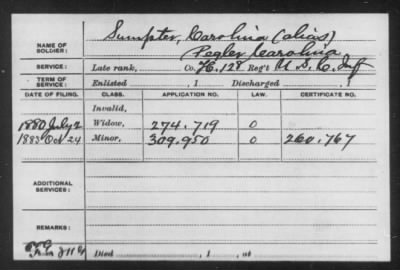 Sumpter, Carolina (alias)
NAME OF SOLDIER: Pegler Carolina
SERVICE: Late rank, Co. H, 128 Reg't U. S. C. Inf
TERM OF SERVICE: Enlisted , 1 Discharged , 1
DATE OF FILING. CLASS. APPLICATION NO. LAW. CERTIFICATE NO.
Invalid,
1880 July 2 Widow, 274.719 0
1883 Oct 24 Minor, 309.950 0 260.767
ADDITIONAL SERVICES:
REMARKS:
Died , 1 , at